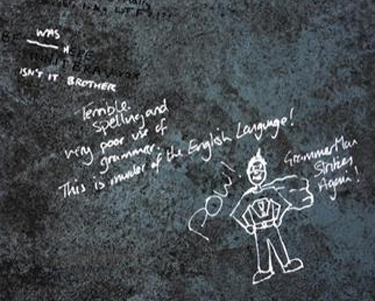 WTF?!!!
WAS
BE HERE
ISN'T IT BROTHER
Terrible.
Spelling and
very poor use of
grammer.
This is murder of the English Language!
Pow!!
GrammerMan
Strikes
Again!